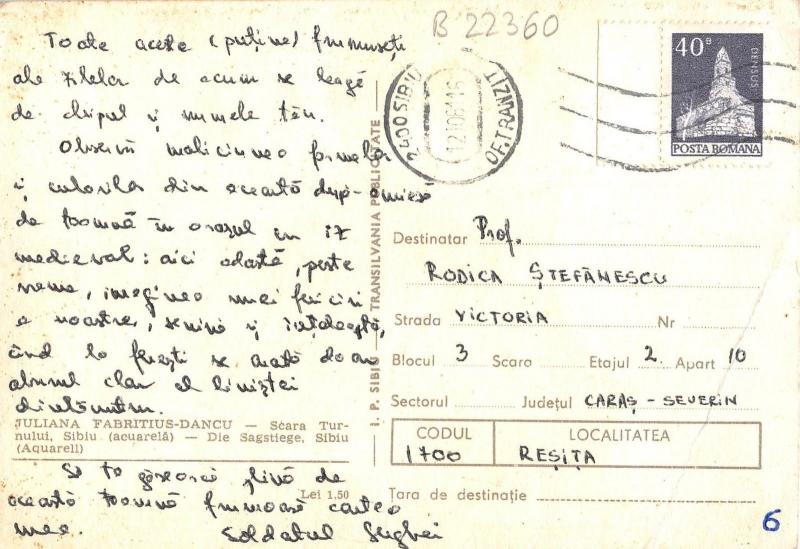 B 22360
Toate aceste (puține) frumuseți
ale zilelor de acum se leagă
de chipul și numele tău.
Observă formelor
și culorilor din această după-amiază
de toamnă în orașul cu iz
medieval: aici adastă, peste
vreme, imaginea unei fericiri
a noastre, senină și înțeleaptă,
când la ferești se arată doar
obrazul clar al liniștei
dinlăuntru.
JULIANA FABRITIUS-DANCU — Scara Tur-
nului, Sibiu (acuarelă) — Die Sagstiege, Sibiu
(Aquarell)
Să te găsească plină de
această toamnă frumoasă cartea
mea. Soldatul Serghei
Lei 1,50
I. P. SIBIU — TRANSILVANIA PUBLICITATE
2400 SIBIU
OF. TRANLIZMI
40 B
DENSUS
POSTA ROMANA
Destinatar Prof.
RODICA ȘTEFĂNESCU
Strada VICTORIA Nr
Blocul 3 Scara Etajul 2 Apart 10
Sectorul Județul CARAȘ - SEVERIN
CODUL LOCALITATEA
1700 REȘIȚA
Țara de destinație
6